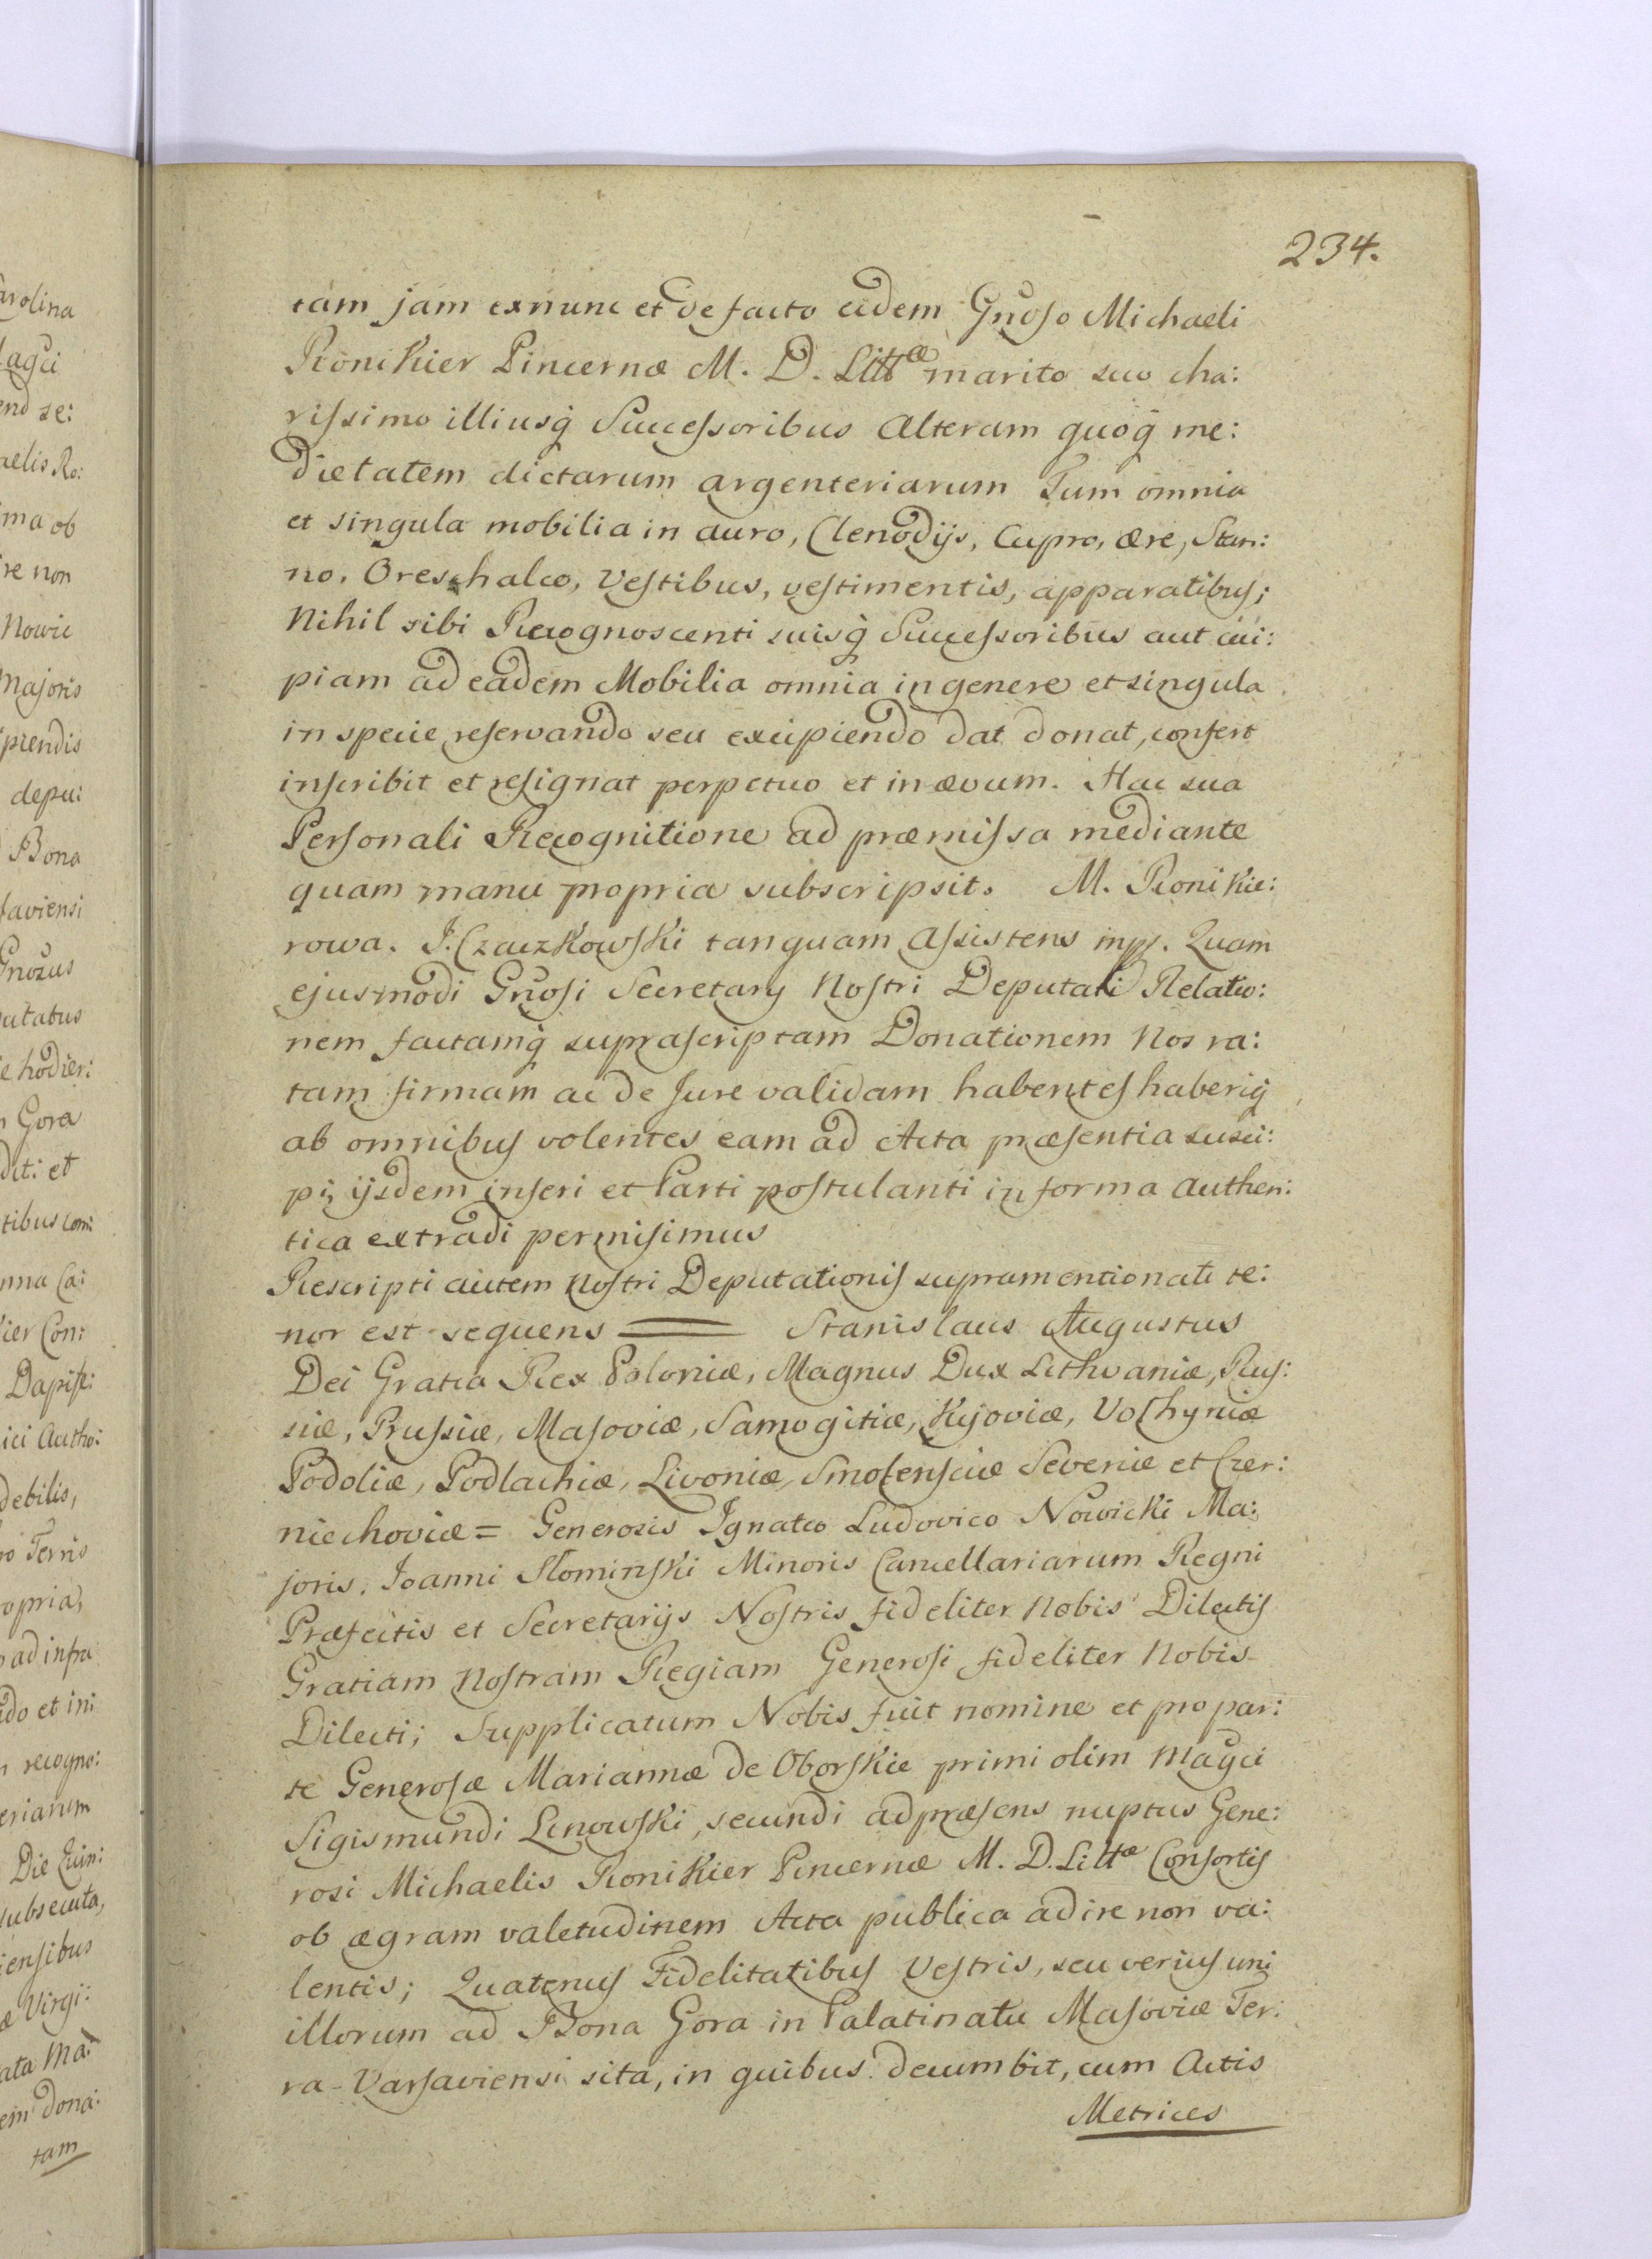 234.
tam jam exnunc et de facto eidem Gnoso Michaeli
Ronikier Pincernæ M. D. Littæ marito suo cha:
rissimo illiusq̃ Successoribus Alteram quoq̃ me:
dietatem dictarum argenteriarum Tum omnia
et singula mobilia in auro, Clenodijs, Cupro, ære, Stan:
no, Oreschalco, Vestibus, vestimentis, apparatibus;
Nihil sibi Recognoscenti suisq̃ Successoribus aut cui:
piam ad eadem Mobilia omnia in genere et singula
in specie reservando seu excipiendo dat donat, confert
inscribit et resignat perpetuo et in ævum. Hac sua
Personali Recognitione ad præmissa mediante
quam manu propria subscripsit. M. Ronikie:
rowa. J. Czaczkowski tanquam Assistens mpp. Quam
ejusmodi Gnosi Secretarij Nostri Deputati Relatio:
nem factamq̃ suprascriptam Donationem Nos ra:
tam firmam ac de Jure validam habentes haberiq̃
ab omnibus volentes eam ad Acta præsentia susci:
pi, ijsdem inseri et Parti postulanti in forma Authen:
tica extradi permisimus
Rescripti autem Nostri Deputationis supramentionati te:
nor est sequens = Stanislaus Augustus
Dei Gratia Rex Poloniæ, Magnus Dux Lithvaniæ, Rus:
siæ, Prussiæ, Masoviæ, Samogitiæ, Kijoviæ, Volhyniæ
Podoliæ, Podlachiæ, Livoniæ, Smolensciæ Severiæ et Czer:
niechoviæ = Generosis Ignatio Ludovico Nowicki Ma:
joris, Joanni Słominski Minoris Cancellariarum Regni
Præfectis et Secretarijs Nostris fideliter Nobis Dilectis
Gratiam Nostram Regiam Generosi fideliter Nobis
Dilecti; Supplicatum Nobis fuit nomine et pro par:
te Generosæ Mariannæ de Oborskie primi olim Magci
Sigismundi Lenowski, secundi ad præsens nuptus Gene:
rosi Michaelis Ronikier Pincernæ M. D. Littæ Consortis
ob ægram valetudinem Acta publica adire non va:
lentis; Quatenus Fidelitatibus Vestris, seu verius uni
illorum ad Bona Gora in Palatinatu Masoviæ Ter:
ra Varsaviensi sita, in quibus decumbit, cum Actis
Metrices
arolina
Nowic
Majoris
depu:
Bona
Gora
Dapif:
debilis,
Terris
ad infra
do et in:
recogno:
Die Quin:
Virgi:
dona:
tam